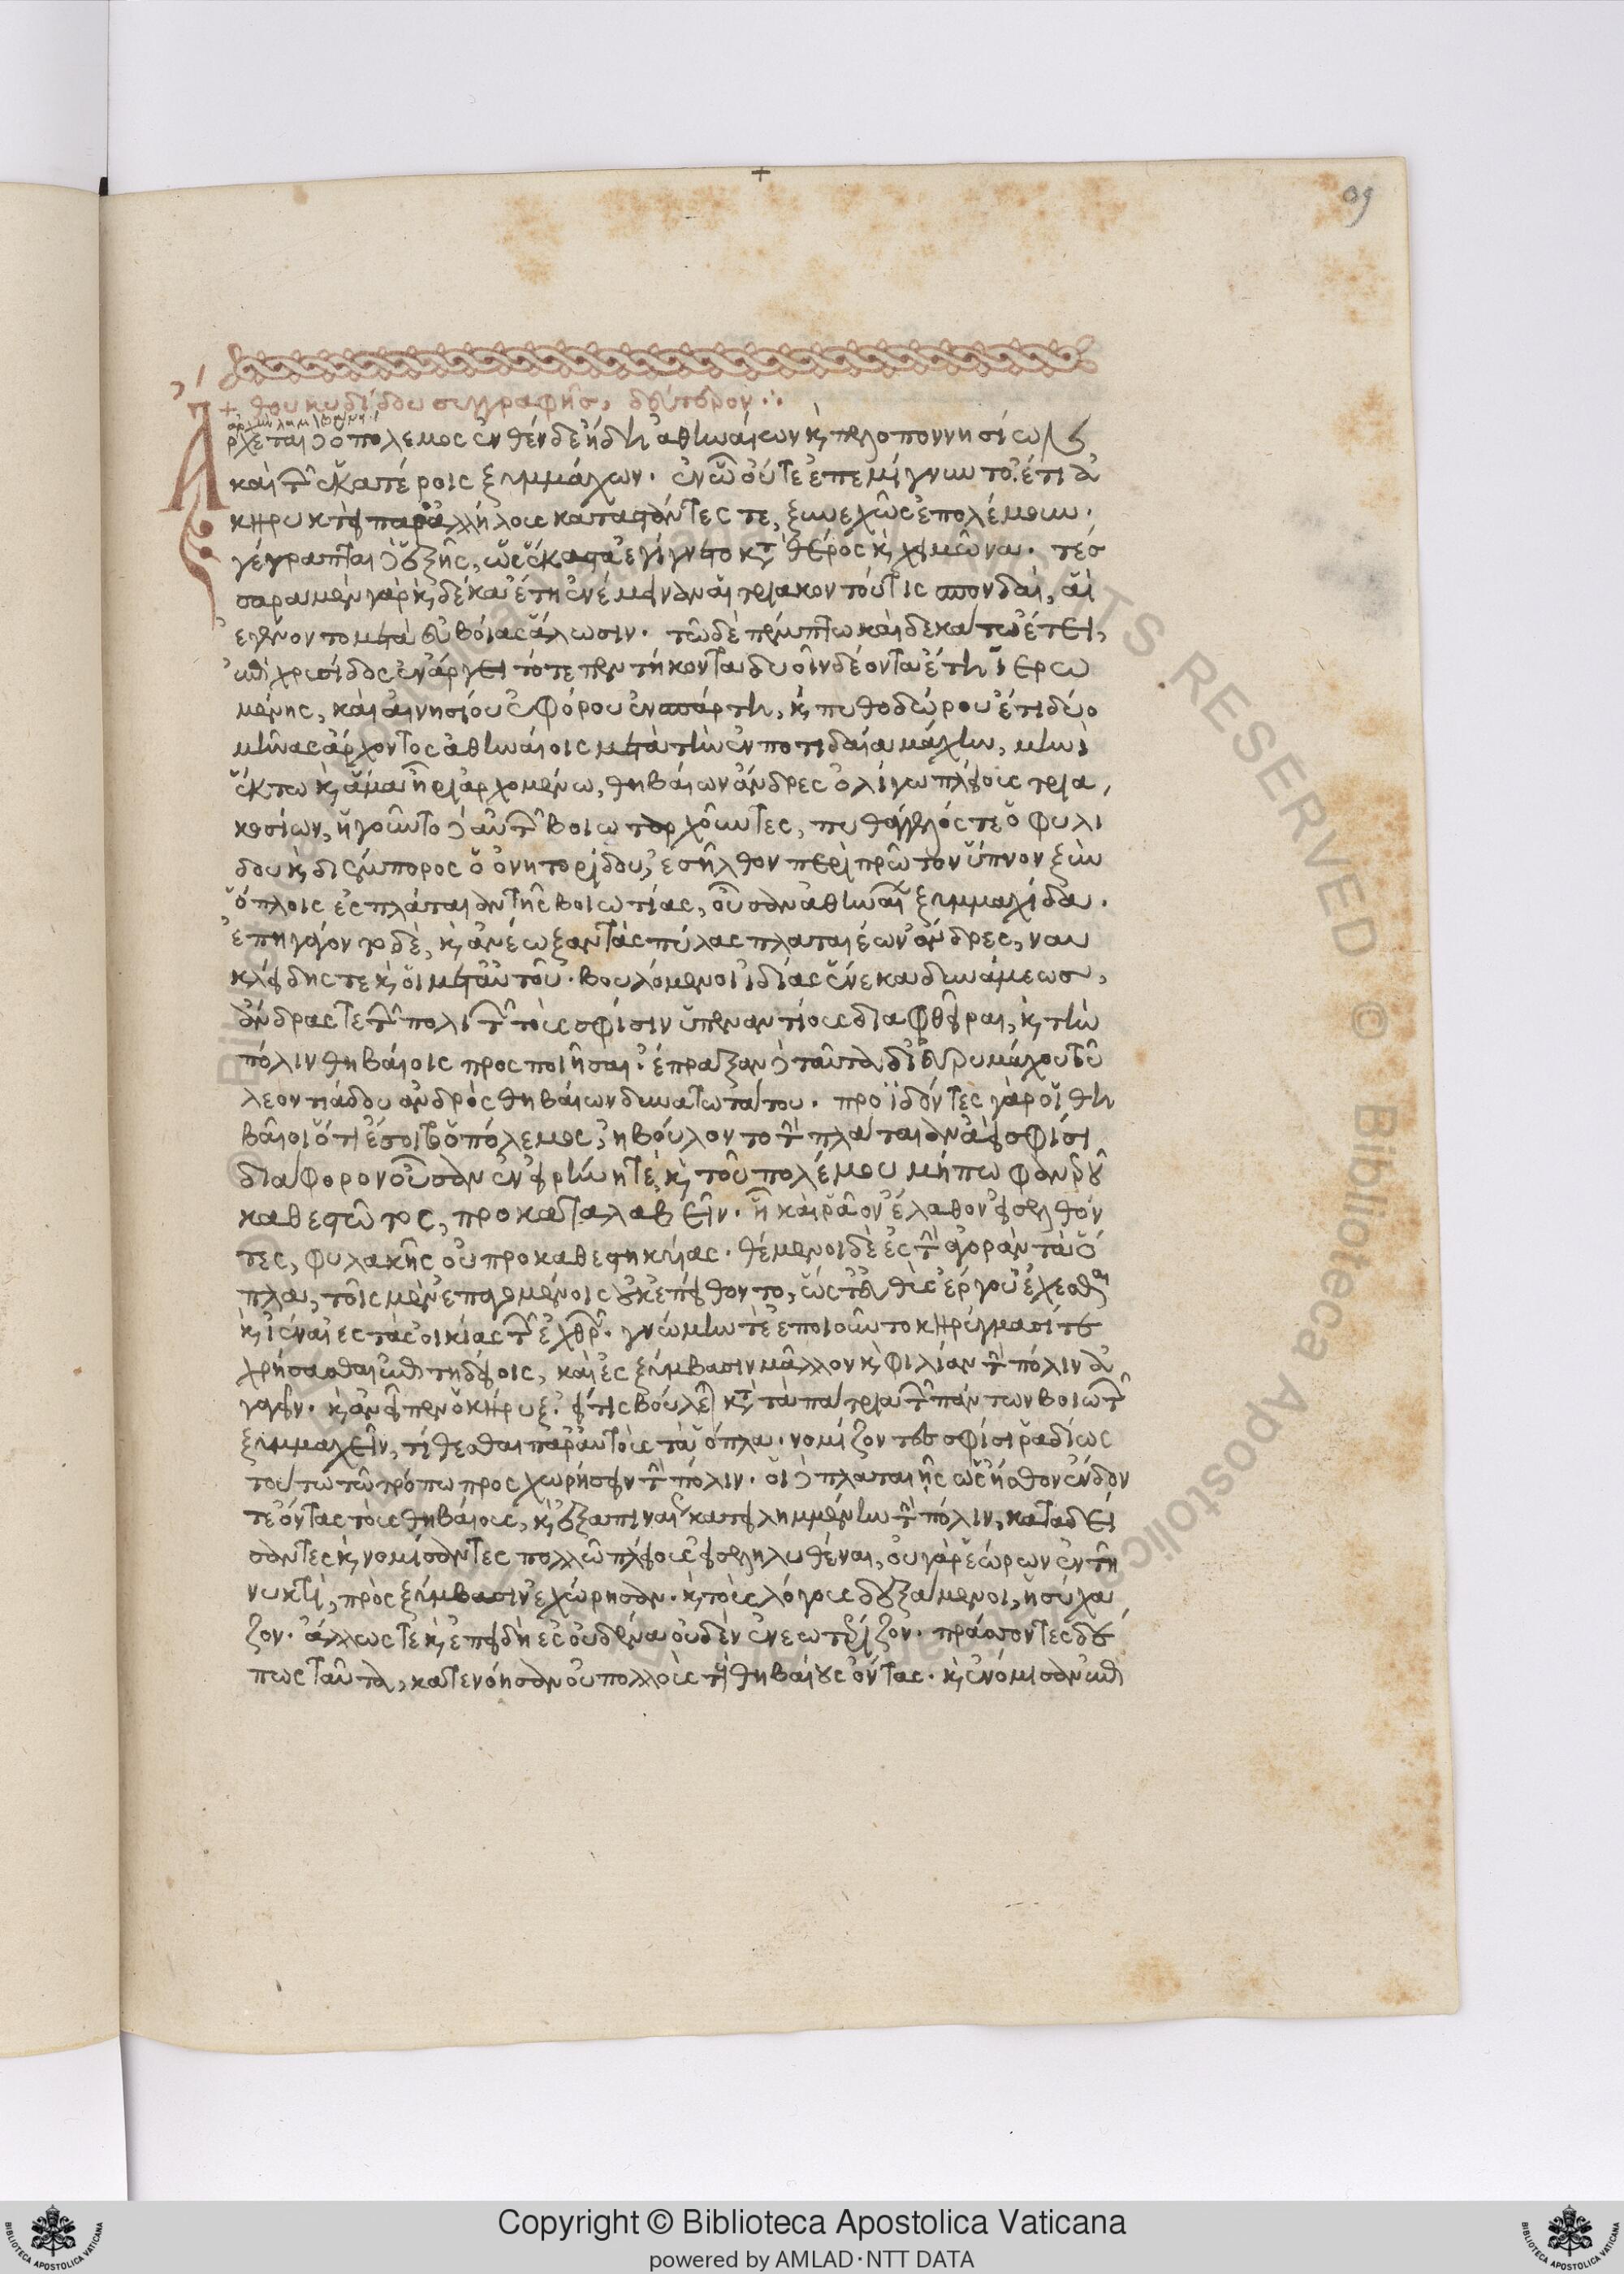 09
+ θουκυδίδου συγγραφῆς, δεύτερον ∴
Ἄρχεται δὲ ὁ πόλεμος ἐνθένδε ἤδη ἀθηναίων καὶ πελοποννησίων
καὶ τῶν ἑκατέροις ξυμμάχων. ἐν ᾧ οὔτε ἐπεμίγνυντο ἔτι ἀ
κηρυκτεὶ παρ' ἀλλήλους καταστάντες τε, ξυνεχῶς ἐπολέμουν.
γέγραπται δὲ ἑξῆς, ὡς ἕκαστα ἐγίγνετο κατὰ θέρος καὶ χειμῶνα. τέσ
σαρα μὲν γὰρ καὶ δέκα ἔτη ἐνέμειναν αἱ τριακοντούτεις σπονδαί, αἳ
ἐγένοντο μετὰ εὐβοίας ἅλωσιν. τῷ δὲ πέμπτῳ καὶ δεκάτῳ ἔτει,
ἐπὶ χρυσίδος ἐν ἄργει τότε πεντήκοντα δυοῖν δέοντα ἔτη ἱερω
μένης, καὶ αἰνησίου ἐφόρου ἐν σπάρτῃ, καὶ πυθοδώρου ἔτι δύο
μῆνας ἄρχοντος ἀθηναίοις μετὰ τὴν ἐν ποτιδαίᾳ μάχην, μηνὶ
ἕκτῳ καὶ ἅμα ἦρι ἀρχομένῳ, θηβαίων ἄνδρες ὀλίγῳ πλείους τρια
κοσίων, ἡγοῦντο δὲ αὐτῶν βοιωταρχοῦντες, πυθάγγελός τε ὁ φυλεί
δου καὶ διέμπορος ὁ ὀνητορίδου, ἐσῆλθον περὶ πρῶτον ὕπνον ξὺν
ὅπλοις ἐς πλάταιαν τῆς βοιωτίας, οὖσαν ἀθηναίων ξυμμαχίδα.
ἐπηγάγοντο δὲ, καὶ ἀνέωξαν τὰς πύλας πλαταιέων ἄνδρες, ναυ
κλείδης τε καὶ οἱ μετ' αὐτοῦ. βουλόμενοι ἰδίας ἕνεκα δυνάμεως,
ἄνδρας τε τῶν πολιτῶν τοὺς σφίσιν ὑπεναντίους διαφθεῖραι, καὶ τὴν
πόλιν θηβαίοις προσποιῆσαι. ἔπραξαν δὲ ταῦτα δι' εὐρυμάχου τοῦ
λεοντιάδου ἀνδρὸς θηβαίων δυνατωτάτου. προϊδόντες γὰρ οἱ θη
βαῖοι ὅτι ἔσοιτο ὁ πόλεμος, ἠβούλοντο τὴν πλάταιαν ἀεὶ σφίσι
διάφορον οὖσαν ἐν εἰρήνῃ τε, καὶ τοῦ πολέμου μήπω φανεροῦ
καθεστῶτος, προκαταλαβεῖν. ᾗ καὶ ῥᾷον ἔλαθον ἐσελθόν
τες, φυλακῆς οὐ προκαθεστηκυίας. θέμενοι δὲ ἐς τὴν ἀγορὰν τὰ ὅ
πλα, τοῖς μὲν ἐπαγομένοις οὐκ ἐπείθοντο, ὥστε εὐθὺς ἔργου ἔχεσθαι
καὶ ἰέναι ἐς τὰς οἰκίας τῶν ἐχθρῶν. γνώμην τε ἐποιοῦντο κηρύγμασί τε
χρήσασθαι ἐπιτηδείοις, καὶ ἐς ξύμβασιν μᾶλλον καὶ φιλίαν τὴν πόλιν ἀ
γαγεῖν. καὶ ἀνεῖπεν ὁ κῆρυξ. εἴ τις βούλεται κατὰ τὰ πάτρια τῶν πάντων βοιωτῶν
ξυμμαχεῖν, τίθεσθαι παρ' αὐτοὺς τὰ ὅπλα. νομίζοντες σφίσι ῥαδίως
τούτῳ τῷ τρόπῳ προσχωρήσειν τὴν πόλιν. οἱ δὲ πλαταιῆς ὡς ᾔσθοντο ἔνδον
τε ὄντας τοὺς θηβαίους, καὶ ἐξαπιναίως κατειλημμένην τὴν πόλιν, καταδεί
σαντες καὶ νομίσαντες πολλῷ πλείους ἐσεληλυθέναι, οὐ γὰρ ἑώρων ἐν τῇ
νυκτὶ, πρὸς ξύμβασιν ἐχώρησαν. καὶ τοὺς λόγους δεξάμενοι, ἡσύχα
ζον. ἄλλως τε καὶ ἐπειδὴ ἐς οὐδένα οὐδὲν ἐνεωτέριζον. πράσσοντες δέ
πως ταῦτα, κατενόησαν οὐ πολλοὺς τοὺς θηβαίους ὄντας. καὶ ἐνόμισαν ἐπι
Copyright © Biblioteca Apostolica Vaticana
powered by AMLAD·NTT DATA